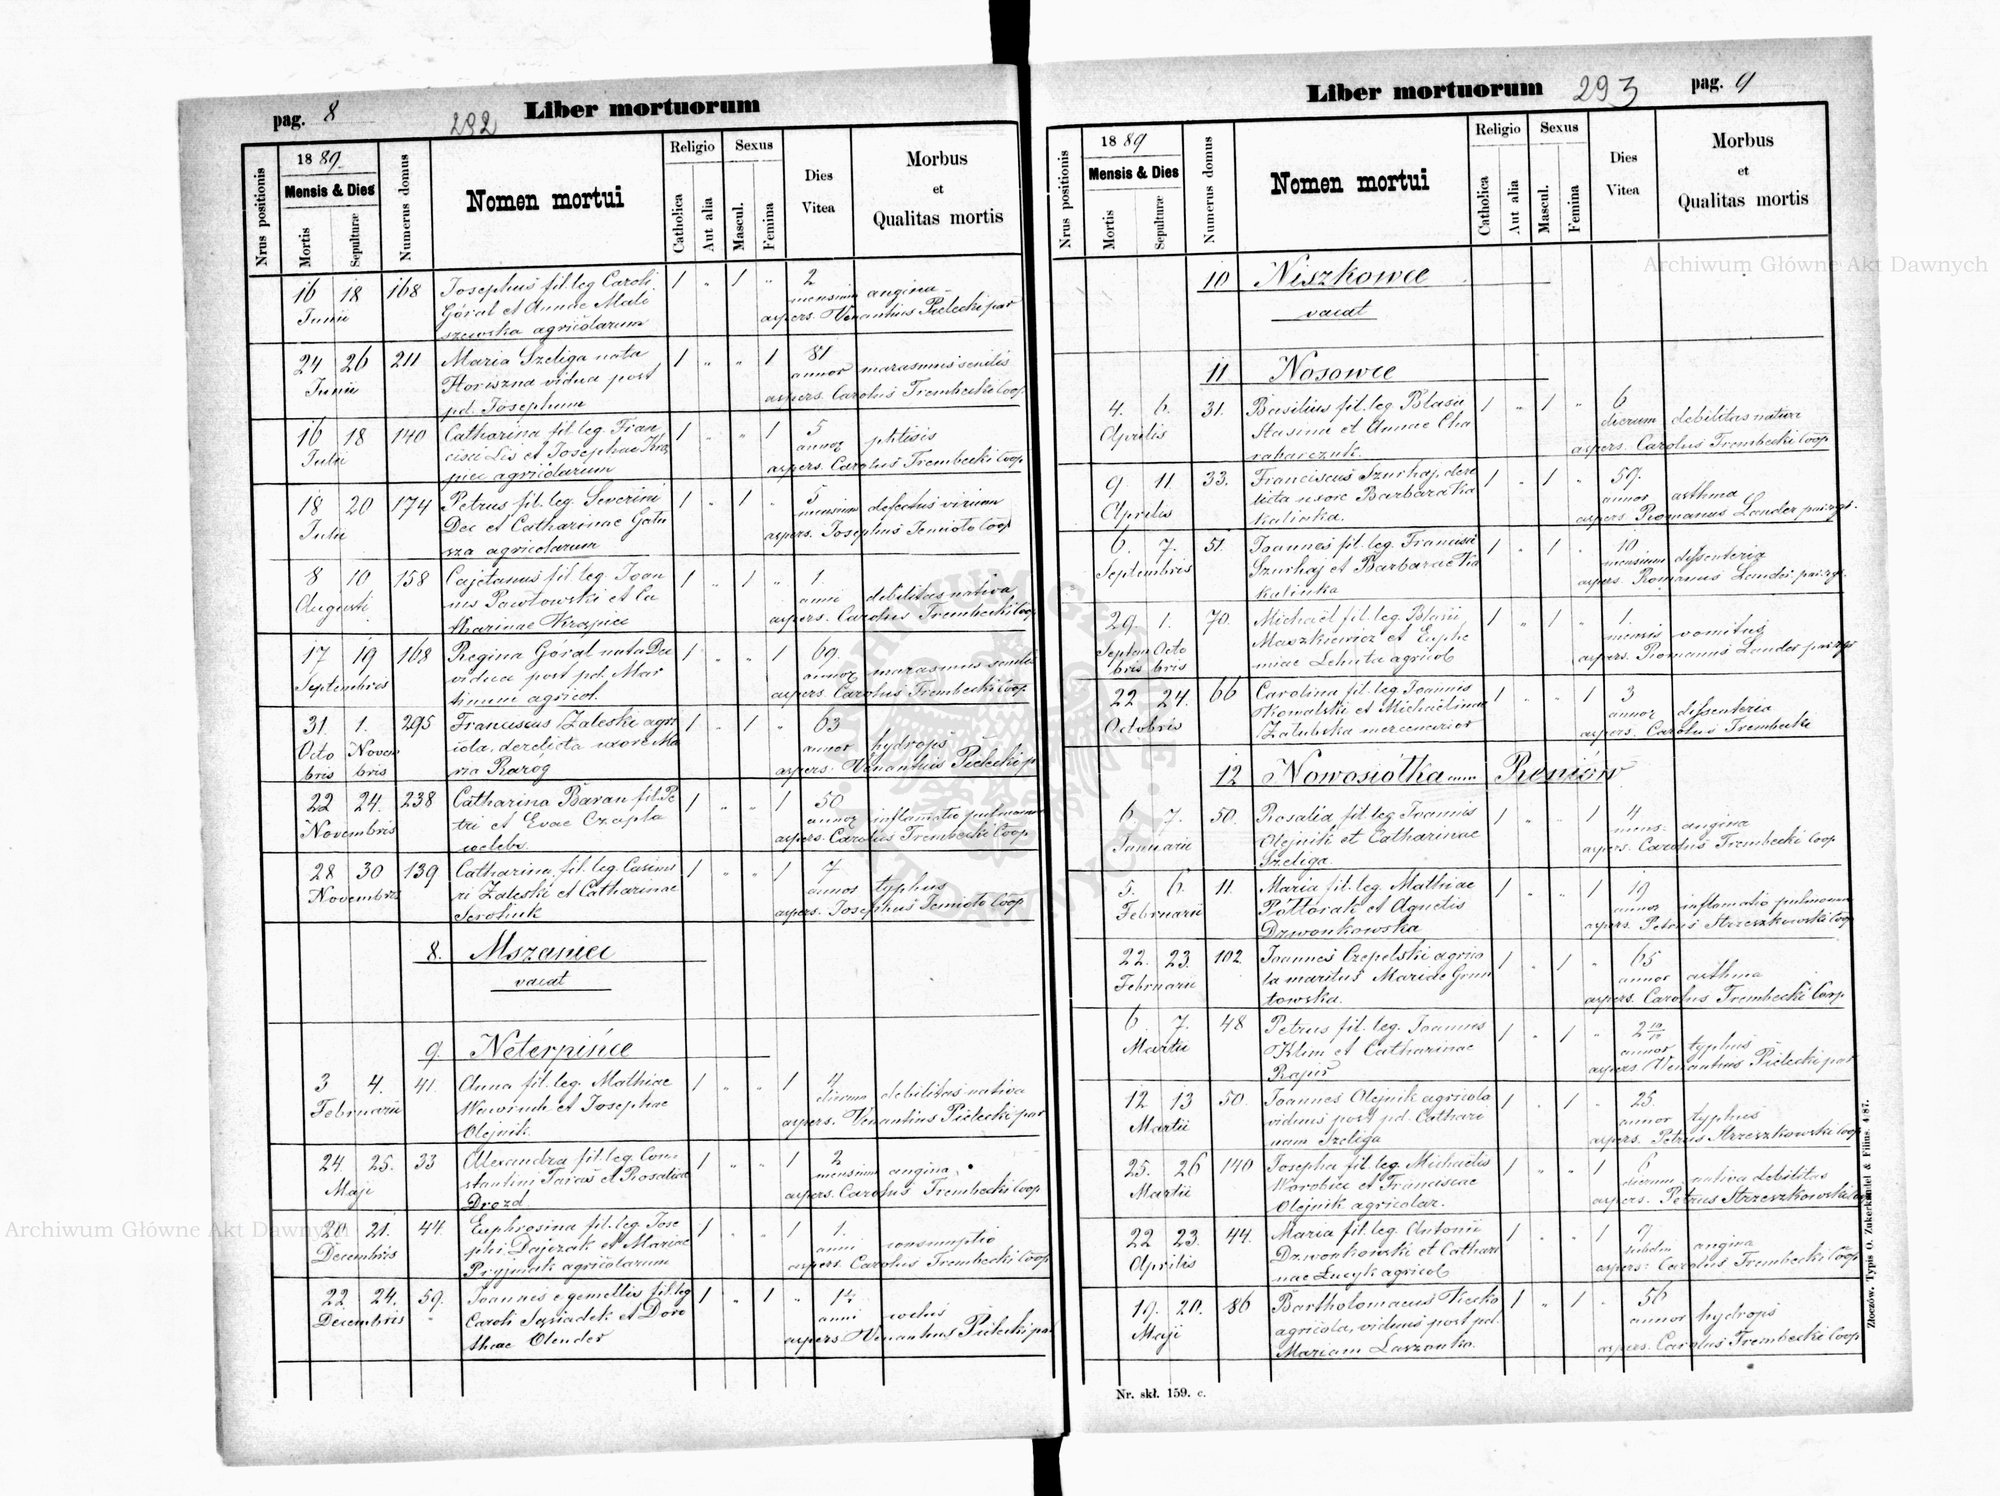 pag. 8
292
Liber mortuorum
Nrus positionis
1889
Mensis & Dies
Mortis
Sepulturæ
Numerus domus
Nomen mortui
Religio
Catholica
Aut alia
Sexus
Mascul.
Femina
Dies
Vitea
Morbus
et
Qualitas mortis
16 18 168 Josephus fil. leg. Caroli 1 " 1 " 2
Junii Góral et Annae Mali mensium angina
szewska agricolarum aspers. Venantius Pielecki par
24 26 211 Maria Szeliga nata 1 " " 1 81
Junii Horiszna vidua post annor marasmus senilis
pd. Josephum aspers. Carolus Trembecki Coop
16 18 140 Catharina fil. leg. Fran 1 " " 1 5
Julii cisci Lis et Josephae annor phtisis
agricolarum aspers. Carolus Trembecki Coop
18 20 174 Petrus fil. leg. Severini 1 " 1 " 5
Julii Dec et Catharinae mensium defectus virium
agricolarum aspers. Josephus Coop
8 10 158 Cajetanus fil. leg. Joan 1 " 1 " 1
Augusti nis Pawłowski et Ca anni debilitas nativa
tharinae Krajnic aspers. Carolus Trembecki Coop
17 19 168 Regina Góral nata Dec 1 " " 1 69
Septembris vidua post pd. Mar annor marasmus senilis
tinum agricol. aspers. Carolus Trembecki Coop
31. 1. 295 Franciscus Zaleski agri 1 " 1 " 63
Octo Novem cola, derelicta uxore Ma annor hydrops
bris bris ria Rarog aspers. Venantius Pielecki p
22 24. 238 Catharina Baran fil. Pe 1 " " 1 50
Novembris tri et Evae Czapla annor inflamatio pulmonum
coelebs. aspers. Carolus Trembecki Coop
28 30 139 Catharina fil. leg. Casimi 1 " " 1 7
Novembris ri Zaleski et Catharinae annor typhus
aspers. Josephus Coop
8. Mszaniec
vacat
9. Neterpińce
3 4. 41. Anna fil. leg. Mathiae 1 " " 1 4
Februarii et Josephae dierum debilitas nativa
Olejnik. aspers. Venantius Pielecki par
24. 25. 33 Alexandra fil. leg. Con 1 " " 1 2
Maji stantini et Rosaliae mensium angina
Drozd aspers. Carolus Trembecki Coop
20 21. 44. Euphrosina fil. leg. Jose 1 " " 1 1.
Decembris phi Dajczak et Mariae anni consumptio
Pryjmak agricolarum aspers. Carolus Trembecki Coop
22. 24. 59. Joannes e gemellis fil. leg 1 " 1 "
Decembris Caroli et Doro anni
theae Olender aspers. Venantius Pielecki par
Liber mortuorum
293
pag. 9
Nrus positionis
1889
Mensis & Dies
Mortis
Sepulturæ
Numerus domus
Nomen mortui
Religio
Catholica
Aut alia
Sexus
Mascul.
Femina
Dies
Vitea
Morbus
et
Qualitas mortis
10 Niszkowce
vacat
11 Nosowce
4. 6. 31. Basilius fil. leg. Blasii 1 " 1 " 6
Aprilis Stasina et Annae Cha dierum debilitas nativa
rabarczuk. aspers. Carolus Trembecki Coop
9 11 33. Franciscus Szurhaj, dere 1 " 1 " 59.
Aprilis licta uxore Barbara Ka annor asthma
kalinka. aspers Romanus Lander
6. 7. 51. Joannes fil. leg. Francisci 1 " 1 " 10
Septembris Szurhaj et Barbarae Ka mensium dissenteria
kalinka aspers Romanus Lander
29. 1. 70. Michaël fil. leg. Blasii 1 " 1 " 1.
Septem Octo Maszkiewicz et Euphe mensis vomitus
bris bris miae agricol aspers. Romanus Lander
22 24. 66 Carolina fil. leg. Joannis 1 " " 1 3
Octobris Kowalski et Michaelinae annor dissenteria
Załubska mercenarior aspers. Carolus Trembecki
12 Nowosiółka cum Reniów
6. 7. 50. Rosalia fil. leg. Joannis 1 " " 1 4
Januarii Olejnik et Catharinae mens. angina
Szeliga. aspers. Carolus Trembecki Coop
5. 6. 11. Maria fil. leg. Mathiae 1 " " 1 19
Februarii Półtorak et Agnetis annor inflamatio pulmonum
Dzwonkowska aspers. Petrus Strzeszkowski Coop
22. 23. 102. Joannes Czepelski agrico 1 " 1 " 65
Februarii la maritus Mariae Grun annor asthma
towska. aspers. Carolus Trembecki Coop
6. 7. 48 Petrus fil. leg. Joannis 1 " 1 " 2 10/12
Martii Klim et Catharinae annor typhus
Rapis aspers Venantius Pielecki par
12 13 50. Joannes Olejnik agricola 1 " 1 " 25.
Martii viduus post pd. Cathari annor typhus
nam Szeliga aspers. Petrus Strzeszkowski Coop
25. 26 140 Josepha fil. leg. Michaëlis 1 " " 1 6
Martii Worobiec et Franciscae dierum nativa debilitas
Olejnik agricolar. aspers. Petrus Strzeszkowski Coop
22 23. 44. Maria fil. leg. Antonii 1 " " 1 9
Aprilis Dzwonkowski et Cathari angina
nae Lucyk agricol aspers. Carolus Trembecki Coop
19. 20. 86 Bartholomaeus Kecko 1 " 1 " 56
Maji agricola, viduus post pd. annor hydrops
Mariam Laszonka. aspers. Carolus Trembecki Coop
Nr. skł. 159. c.
Złoczów. Typis O. Zukerkandel & Filius. 4/87.
Archiwum Główne Akt Dawnych
Archiwum Główne Akt Dawnych
ARCHIWUM GŁÓWNE AKT DAWNYCH